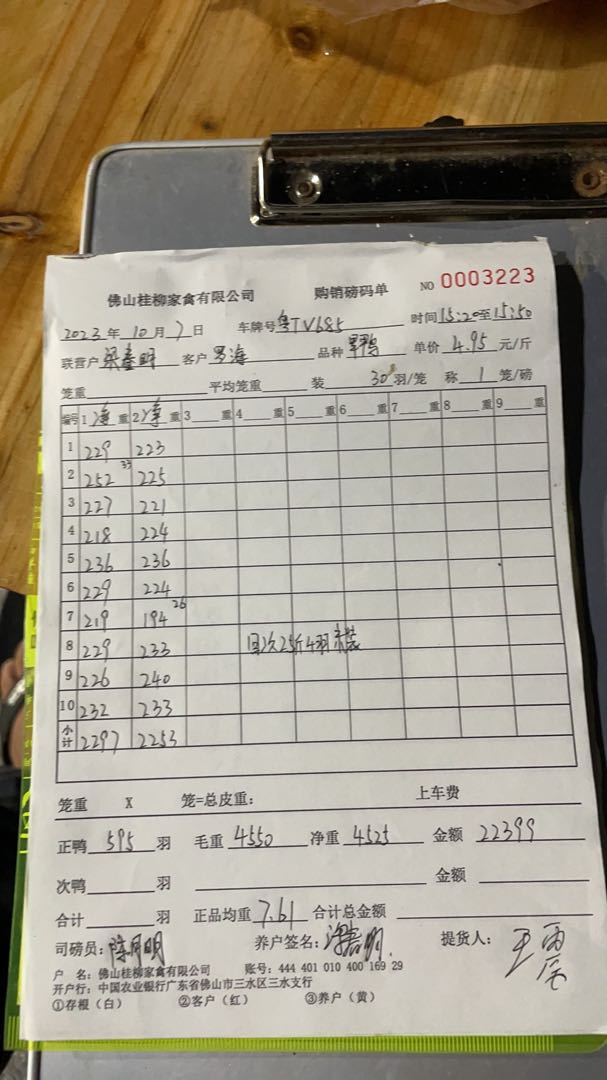 佛山桂柳家禽有限公司 购销磅码单 NO 0003223
2023年10月7日 车牌号粤TV685 时间15:20至15:50
联营户 客户罗海 品种 单价4.95元/斤
笼重 平均笼重 装30羽/笼 称1笼/磅
编号 1净重 2净重 3重 4重 5重 6重 7重 8重 9重
1 229 223
2 252 33 225
3 227 221
4 218 224
5 236 236
6 229 224
7 219 194 26
8 229 233 次25斤4羽未装
9 226 240
10 232 233
小计 2297 2253
笼重 X 笼=总皮重: 上车费
正鸭595羽 毛重4550 净重4525 金额22399
次鸭 羽 金额
合计 羽 正品均重7.61 合计总金额
司磅员: 养户签名: 提货人:
户 名: 佛山桂柳家禽有限公司 账号: 444 401 010 400 169 29
开户行: 中国农业银行广东省佛山市三水区三水支行
①存根(白) ②客户(红) ③养户(黄)